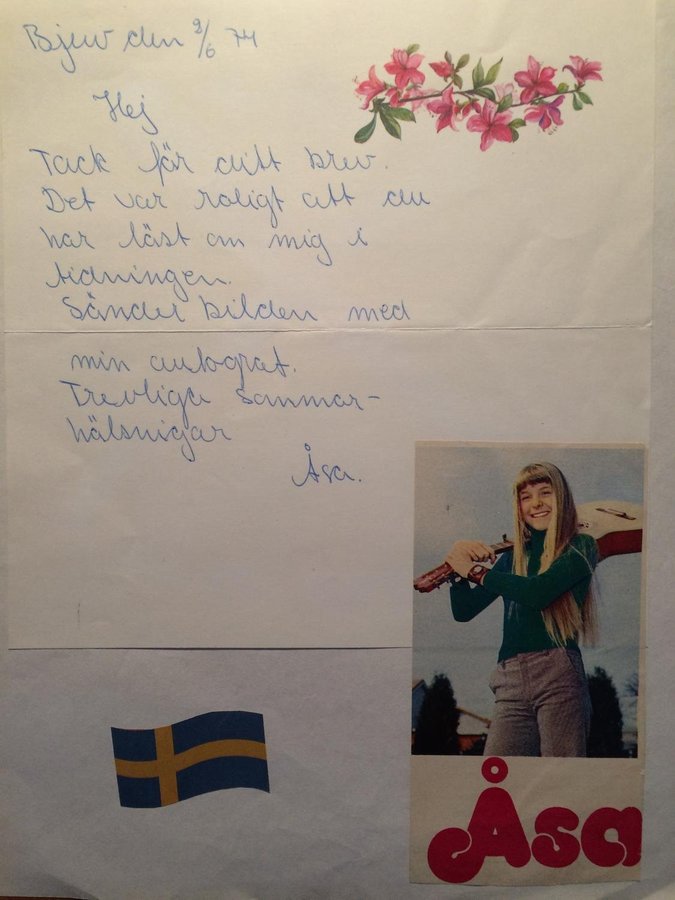 Bjuv den 2/6 74
Hej
Tack för ditt brev.
Det var roligt att du
har läst om mig i
tidningen.
Sänder bilden med
min autograf.
Trevliga sommar-
hälsnigar
Åsa.
Åsa